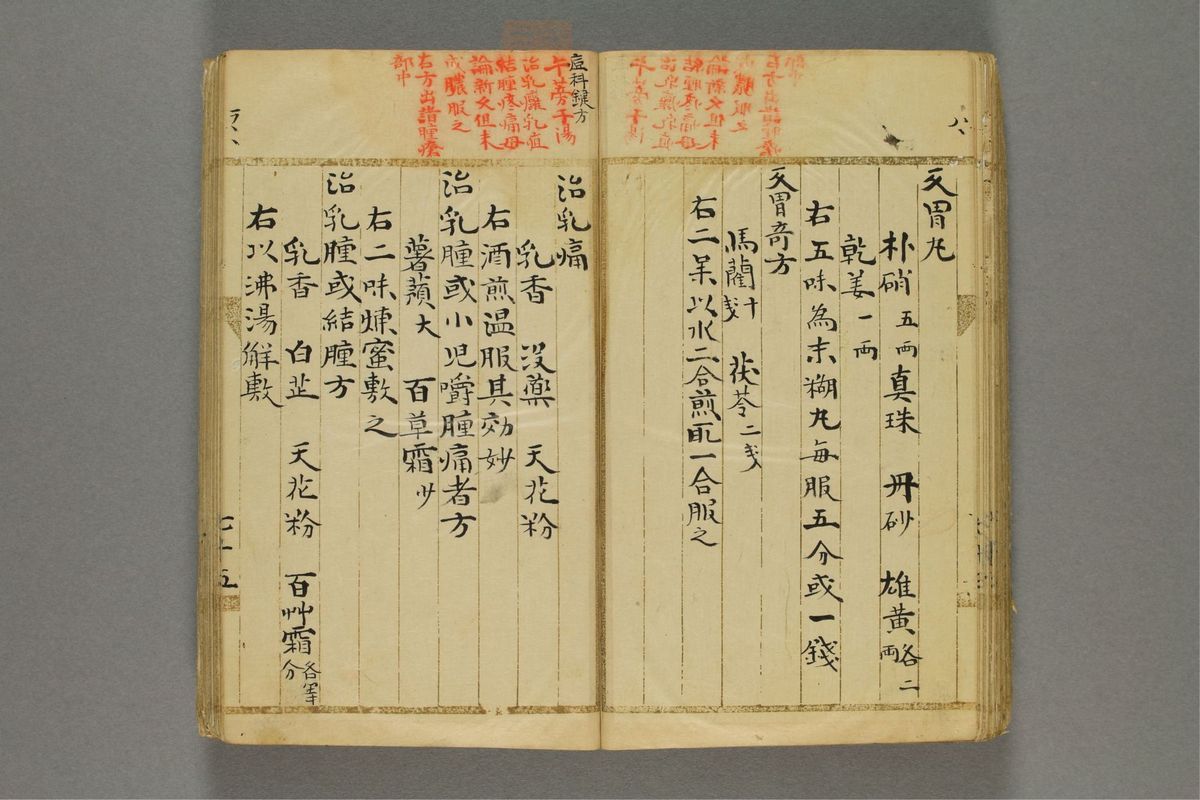 反胃丸
朴硝五両 真珠 丹砂 雄黄各二両
乾姜一両
右五味為末糊丸每服五分或一錢
反胃奇方
馬藺十戋 茯苓二戋
右二味以水二合煎取一合服之
痘科鍵方
牛蒡子湯
治乳癰乳疽
結腫疼痛毋
論新久但未
成膿服之
右方出諸腫瘡
部中
治乳痛
乳香 没藥 天花粉
右酒煎温服其効妙
治乳腫或小児嚼腫痛者方
薯蕷大 百草霜少
右二味煉蜜敷之
治乳腫或結腫方
乳香 白芷 天花粉 百艸霜各等分
右以沸湯觧敷
七十五